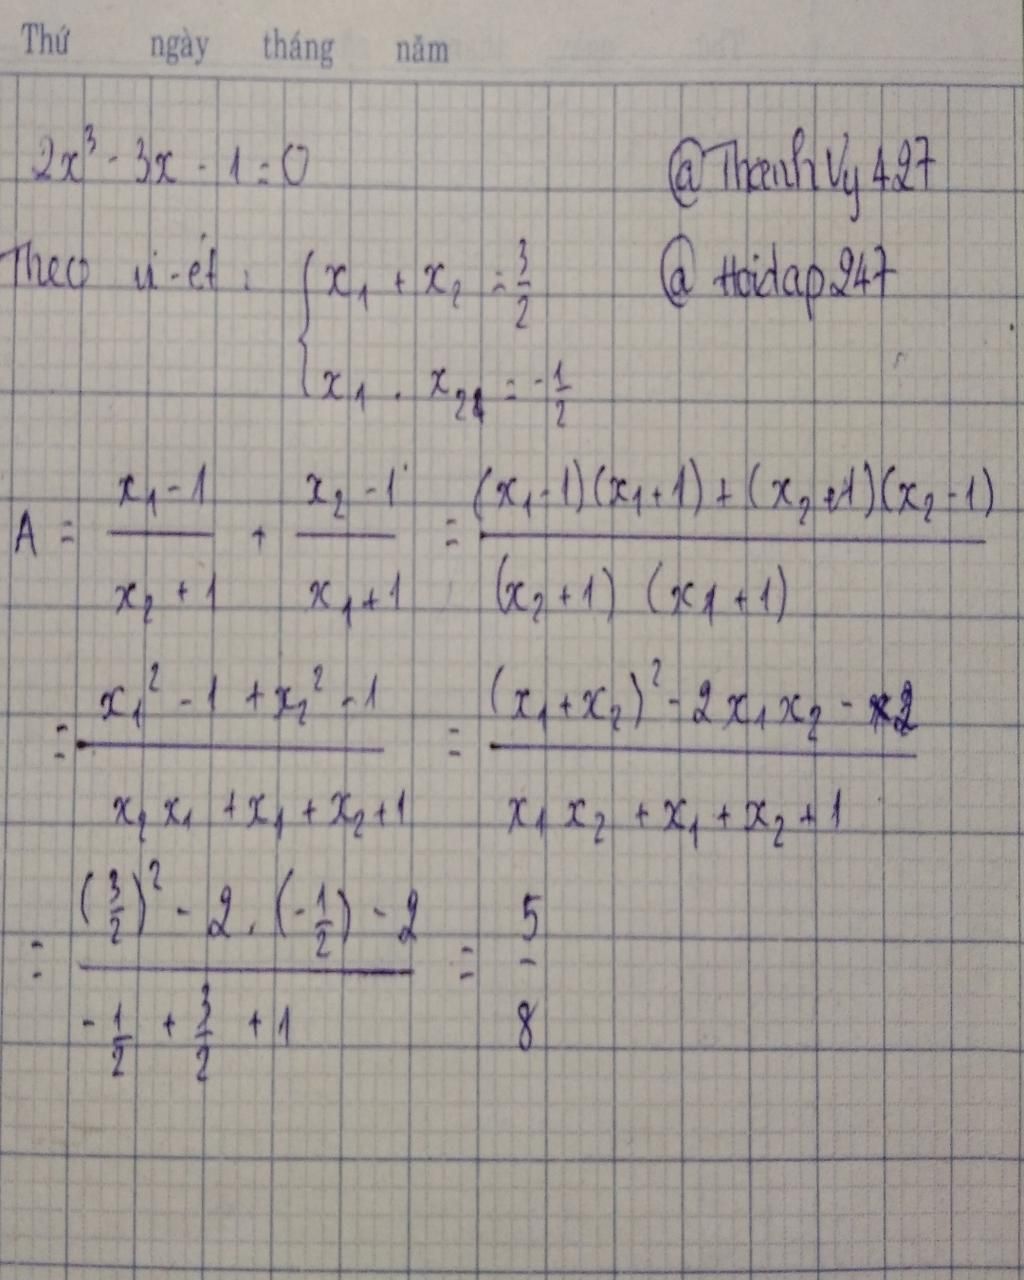 Thứ ngày tháng năm
2x³ - 3x - 1 = 0 @ThanhVy427
Theo vi-ét : { x₁ + x₂ = 3/2 @Hoidap247
x₁ . x₂ = -1/2
A = (x₁ - 1)/(x₂ + 1) + (x₂ - 1)/(x₁ + 1) = ((x₁ - 1)(x₁ + 1) + (x₂ + 1)(x₂ - 1))/((x₂ + 1)(x₁ + 1))
= (x₁² - 1 + x₂² - 1)/(x₂x₁ + x₁ + x₂ + 1) = ((x₁ + x₂)² - 2x₁x₂ - 2)/(x₁x₂ + x₁ + x₂ + 1)
= ((3/2)² - 2 . (-1/2) - 2)/(-1/2 + 3/2 + 1) = 5/8